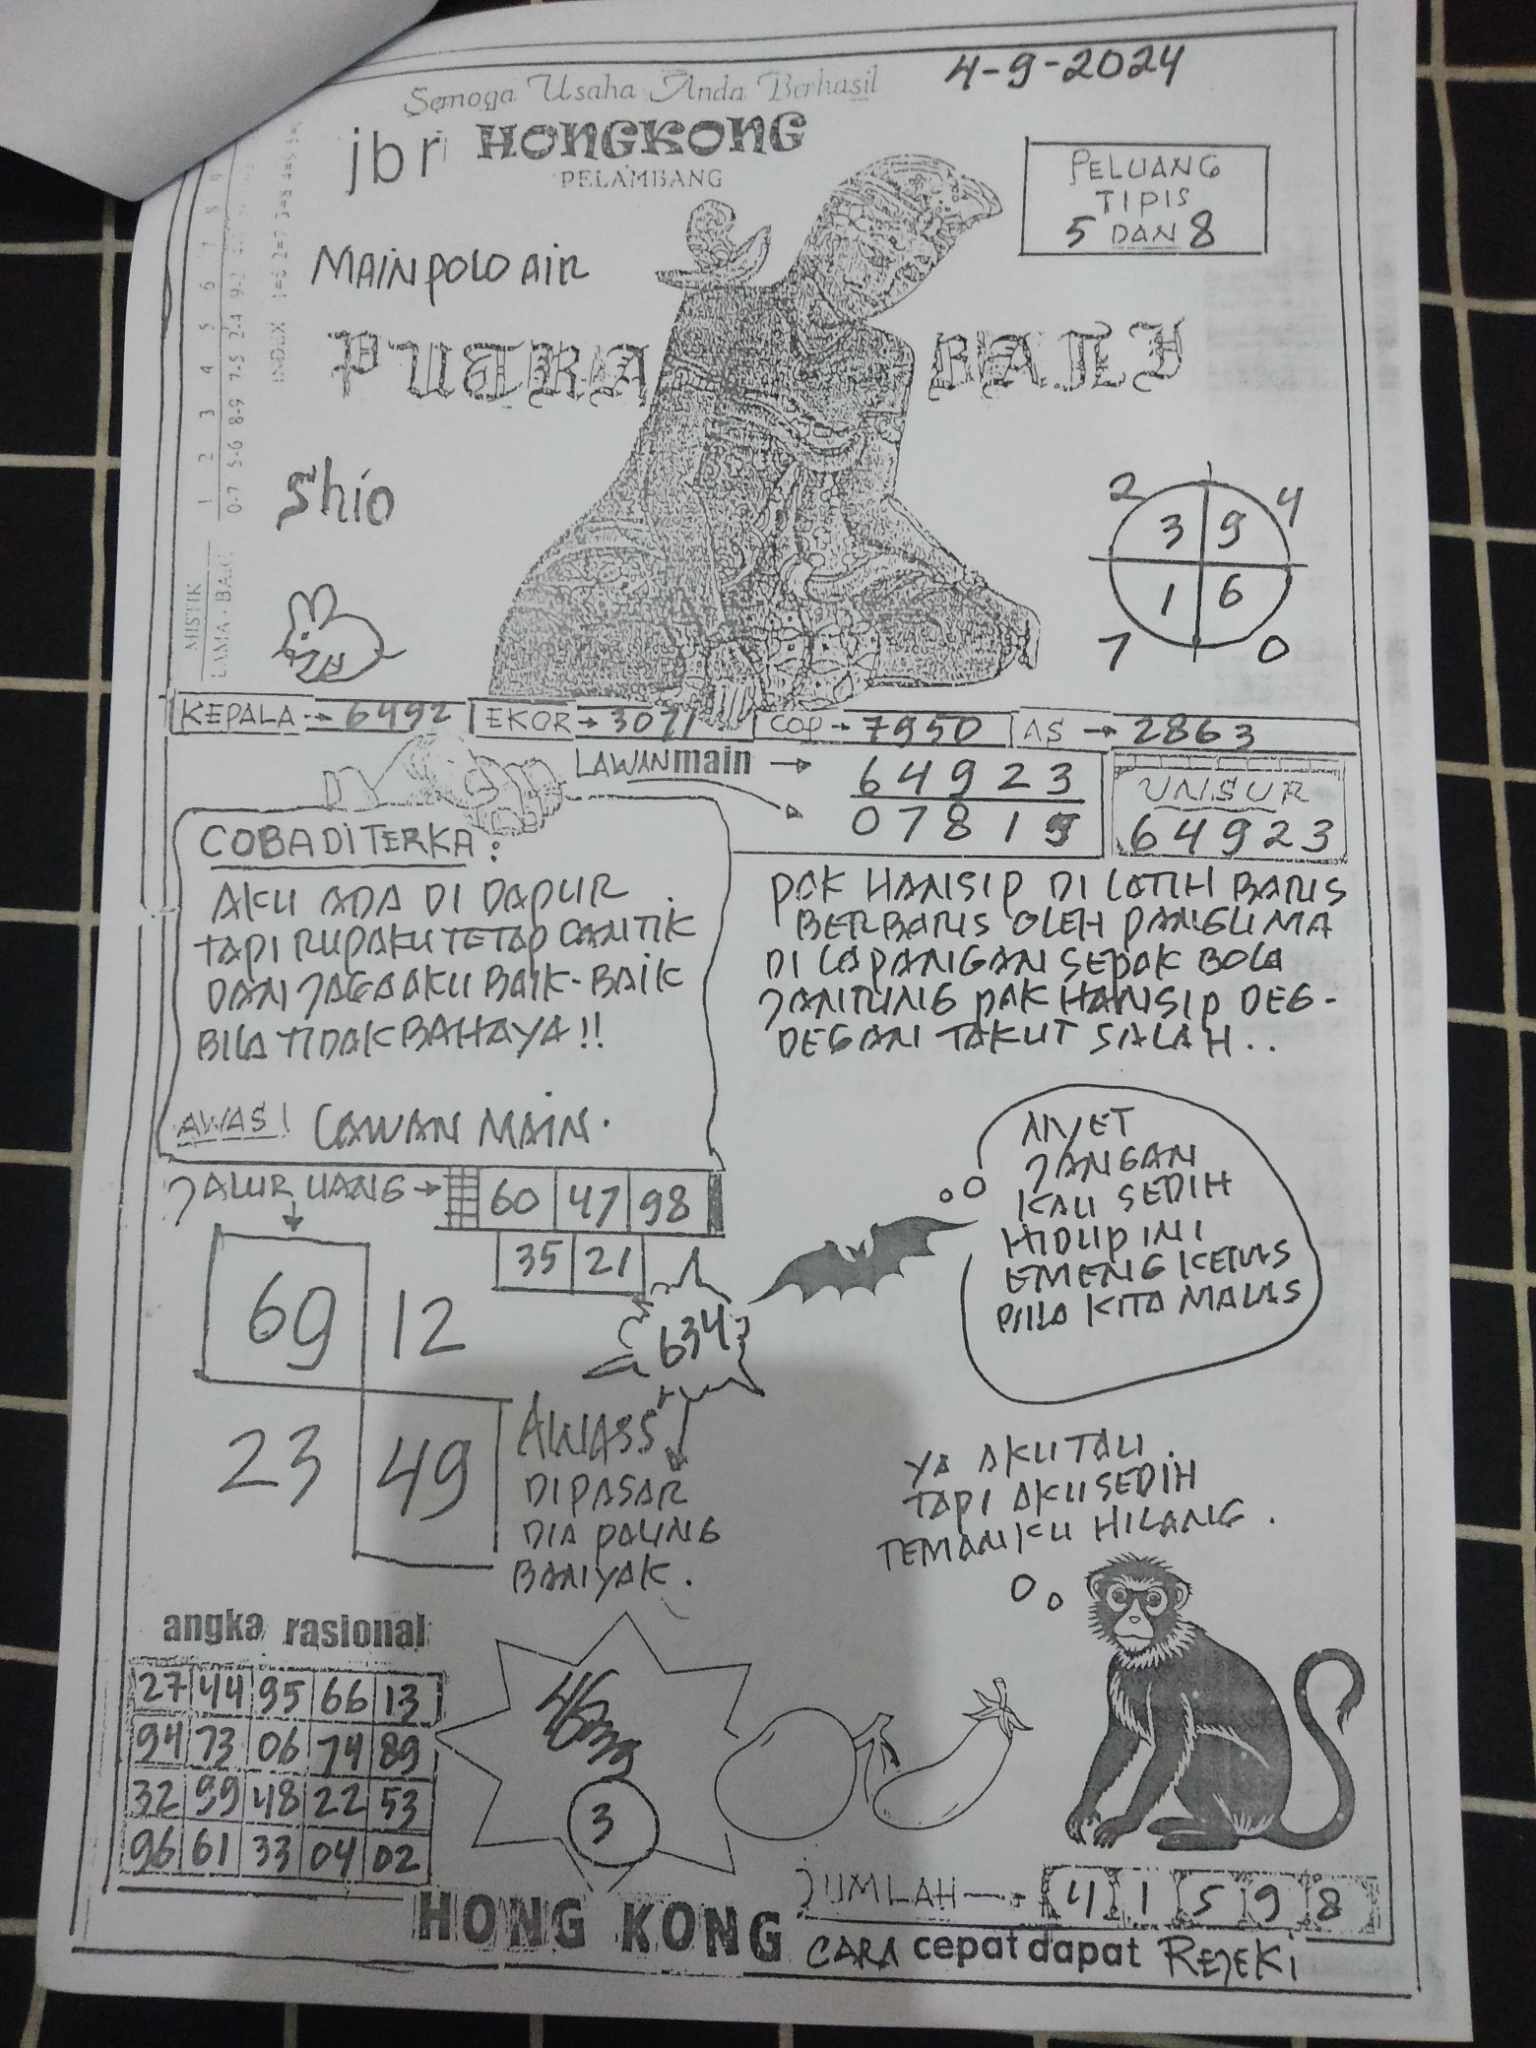 4-9-2024
Semoga Usaha Anda Berhasil
jbr HONGKONG
PELAMBANG
PELUANG
TIPIS
5 DAN 8
MAIN POLO AIR
PUTRA BALI
Shio
1 2 3 4 5 6 7 8 9
0-7 5-6 8-9 7-5 2-4 9-2
INDEX 1=6 2=7
MISTIK
LAMA - BARU
2 4
3 9
1 6
7 0
KEPALA → 6492 EKOR → 3071 COP → 7950 AS → 2863
LAWAN main → 64923
07819
UNSUR
64923
COBA DITERKA :
AKU ADA DI DAPUR
TAPI RUPAKU TETAP CANTIK
DAN JAGA AKU BAIK-BAIK
BILA TIDAK BAHAYA !!
AWAS! LAWAN MAIN.
PAK HANSIP DI LATIH BARIS
BERBARIS OLEH PANGLIMA
DI LAPANGAN SEPAK BOLA
JANTUNG PAK HANSIP DEG-
DEGAN TAKUT SALAH..
JALUR UANG → 60 47 98
35 21
69 12
23 49
634
AWASS
DIPASAR
DIA PALING
BANYAK.
NYET
JANGAN
KAU SEDIH
HIDUP INI
EMENG KERAS
KITA
YA AKU TAU.
TAPI AKU SEDIH
TEMANKU HILANG.
angka rasional
27 44 95 66 13
94 73 06 74 89
32 99 48 22 53
96 61 33 04 02
3
JUMLAH → 4 1 5 9 8
HONG KONG CARA cepat dapat REJEKI